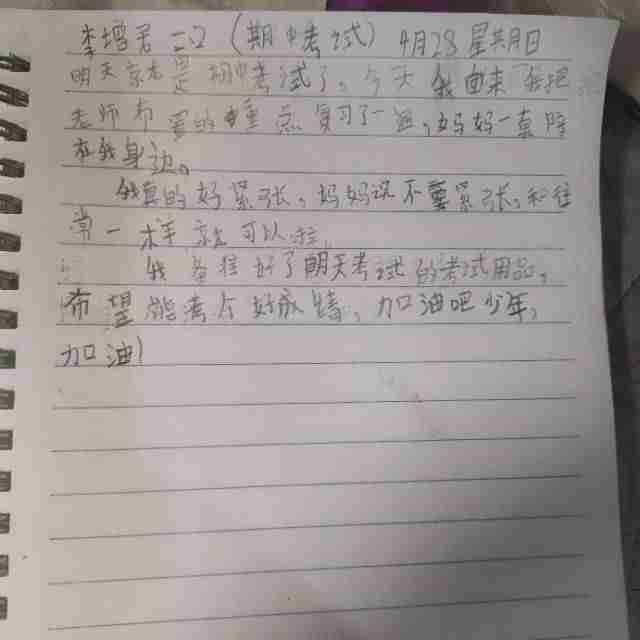 李增君 二2（期中考试）4月28 星期日
明天就是期中考试了，今天我由来我把
老师布置的重点复习了一遍，妈妈一直陪
在我身边。
我真的好紧张，妈妈说不要紧张，和往
常一样就可以啦，
我准备好了明天考试的考试用品。
希望能考个好成绩，加油吧少年，
加油！